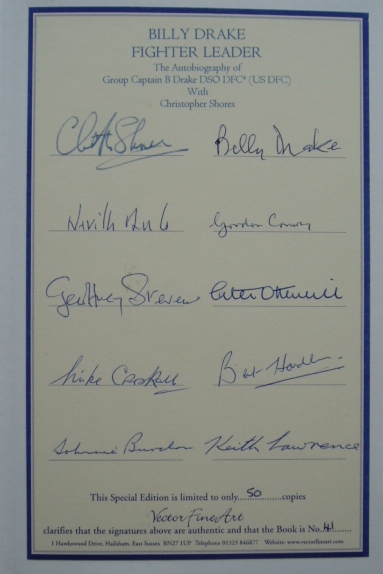 BILLY DRAKE
FIGHTER LEADER
The Autobiography of
Group Captain B Drake DSO DFC* (US DFC)
With
Christopher Shores
Billy Drake
Gordon
Geoffrey Stevens
Mike Croskell Bat
Johnnie Keith Lawrence
This Special Edition is limited to only...50...copies
Vector Fine Art
clarifies that the signatures above are authentic and that the Book is No. 41
1 Hawkswood Drive, Hailsham, East Sussex BN27 1UP Telephone 01323 846877 Website: www.vectorfineart.com